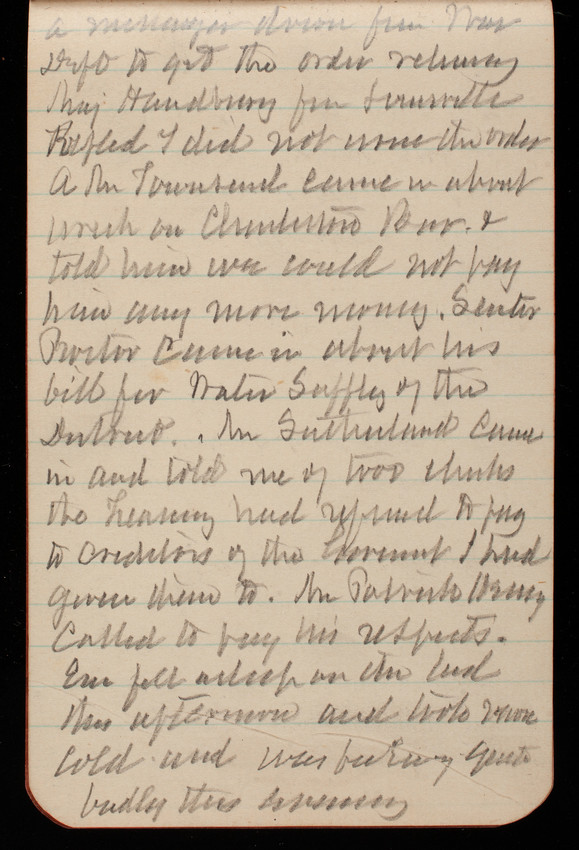 a messenger down from War
Dept to get the order relieving
Maj Handbury from Louisville
Replied I did not issue the order
A Mr Townsend came in about
work on Charleston Bar. &
told him we could not pay
him any more money. Senator
Proctor came in about his
bill for Water Supply of the
District. Mr Sutherland came
in and told me of two checks
the Treasury had refused to pay
to creditors of the I had
given them to. Mr Patrick Henry
Called to pay his respects.
Em fell asleep on the bed
this afternoon and took more
cold and was feeling quite
badly this evening